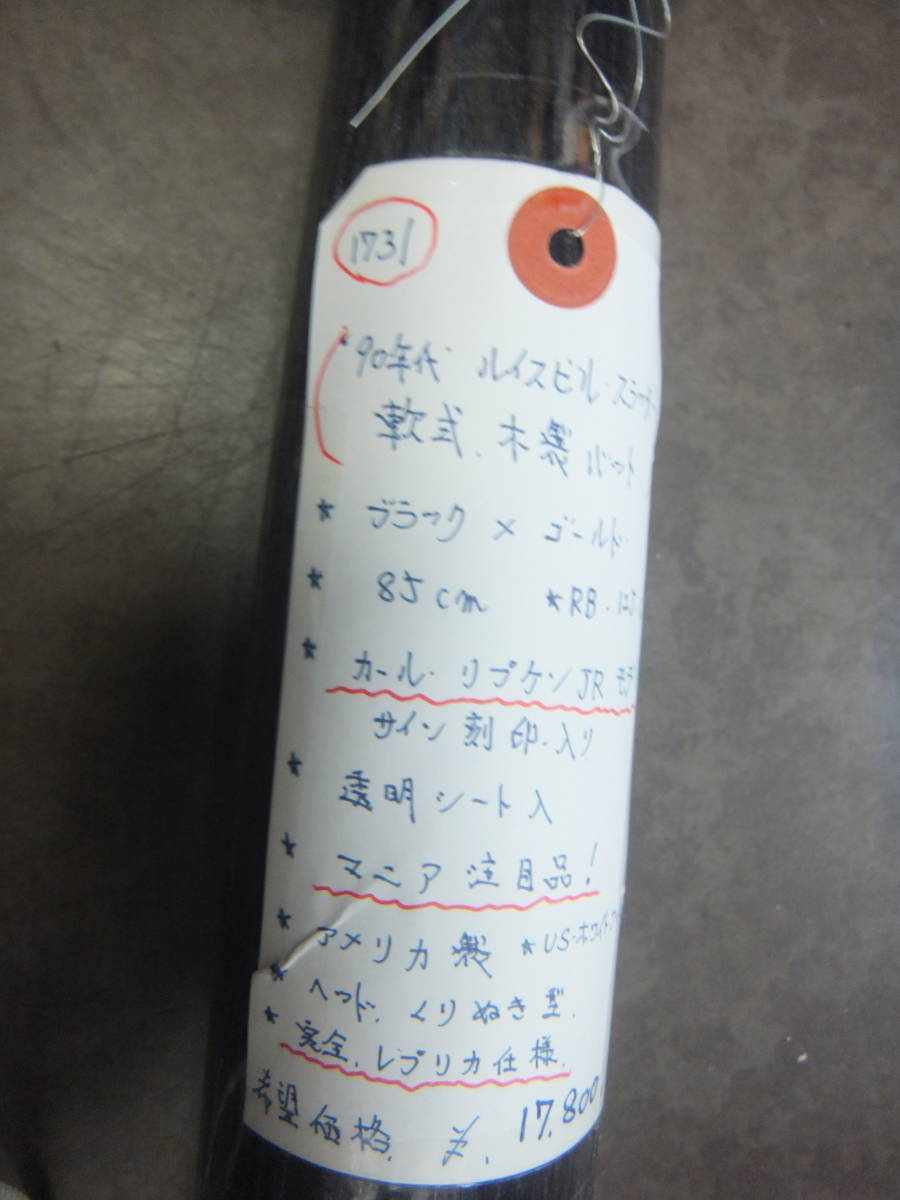 1731
'90年代 ルイスビル・スラッガー
軟式.木製バット
★ ブラック × ゴールド
★ 85cm ★RB.
★ カール・リプケンJR モデ
サイン刻印.入り
★ 透明シート入
★ マニア注目品!
★ アメリカ製 ★US.ホワイト
★ ヘッド.くりぬき型.
★ 完全.レプリカ仕様.
希望価格.¥.17.800.